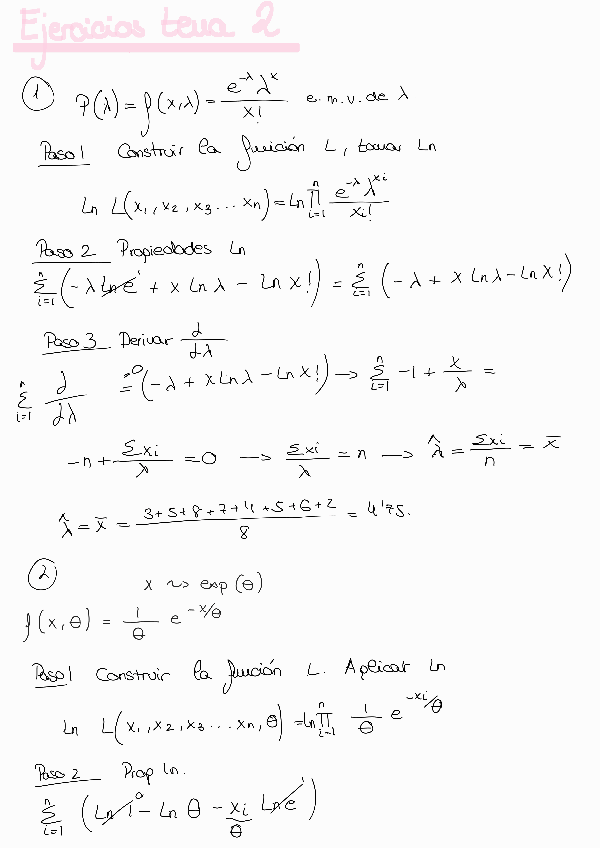 Ejercicios tema 2
① P(λ) = f(x,λ) = e^-λ λ^x / x! e.m.v. de λ
Paso 1 Construir la función L, tomar Ln
Ln L(x₁, x₂, x₃ ... xₙ) = Ln ∏ᵢ₌₁ⁿ e^-λ λ^xi / xi!
Paso 2 Propiedades Ln
∑ᵢ₌₁ⁿ (-λ Ln e¹ + x Ln λ - Ln x!) = ∑ᵢ₌₁ⁿ (-λ + x Ln λ - Ln x!)
Paso 3 Derivar ∂/∂λ
∑ᵢ₌₁ⁿ ∂/∂λ =⁰ (-λ + x Ln λ - Ln x!) → ∑ᵢ₌₁ⁿ -1 + x/λ =
-n + ∑xi/λ = 0 → ∑xi/λ = n → λ̂ = ∑xi/n = x̄
λ̂ = x̄ = 3+5+8+7+4+5+6+2 / 8 = 4'75.
② x ~> exp(θ)
f(x,θ) = 1/θ e^-x/θ
Paso 1 Construir la función L. Aplicar Ln
Ln L(x₁, x₂, x₃ ... xₙ, θ) = ln ∏ᵢ₌₁ⁿ 1/θ e^-xi/θ
Paso 2 Prop ln.
∑ᵢ₌₁ⁿ (Ln 1⁰ - Ln θ - xi/θ Ln e¹)